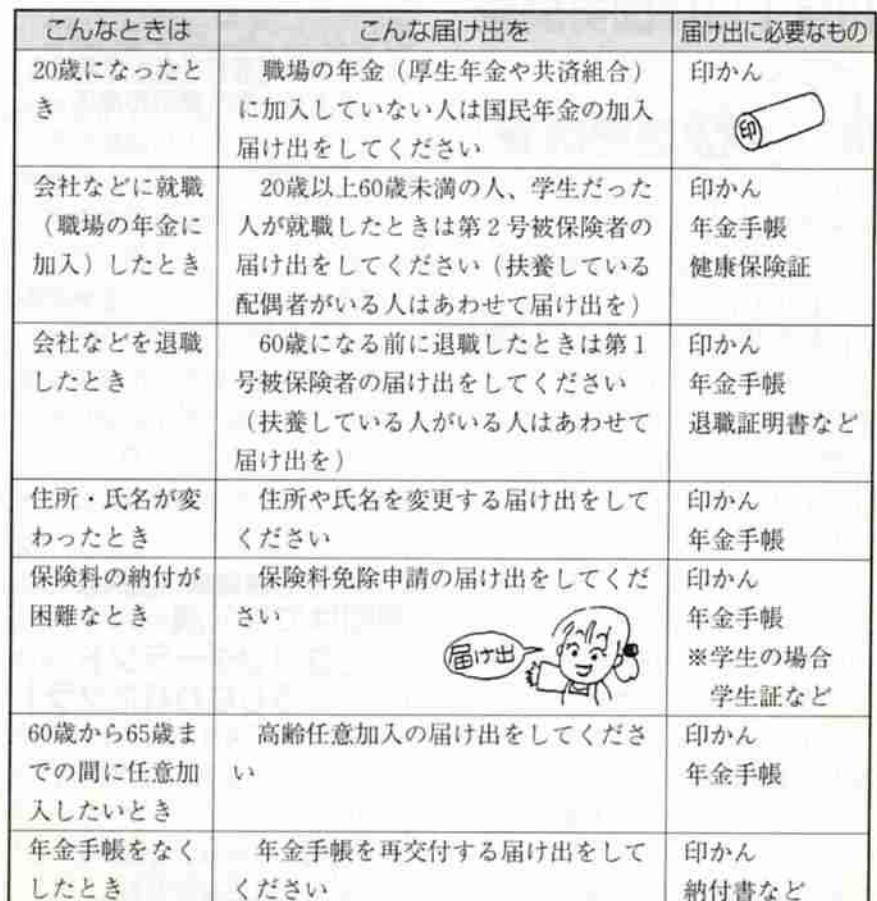 こんなときは
こんな届け出を
届け出に必要なもの
20歳になったと
き
職場の年金（厚生年金や共済組合）
に加入していない人は国民年金の加入
届け出をしてください
印かん
印
会社などに就職
（職場の年金に
加入）したとき
20歳以上60歳未満の人、学生だった
人が就職したときは第２号被保険者の
届け出をしてください（扶養している
配偶者がいる人はあわせて届け出を）
印かん
年金手帳
健康保険証
会社などを退職
したとき
60歳になる前に退職したときは第１
号被保険者の届け出をしてください
（扶養している人がいる人はあわせて
届け出を）
印かん
年金手帳
退職証明書など
住所・氏名が変
わったとき
住所や氏名を変更する届け出をして
ください
印かん
年金手帳
保険料の納付が
困難なとき
保険料免除申請の届け出をしてくだ
さい
届け出
印かん
年金手帳
※学生の場合
学生証など
60歳から65歳ま
での間に任意加
入したいとき
高齢任意加入の届け出をしてくださ
い
印かん
年金手帳
年金手帳をなく
したとき
年金手帳を再交付する届け出をして
ください
印かん
納付書など